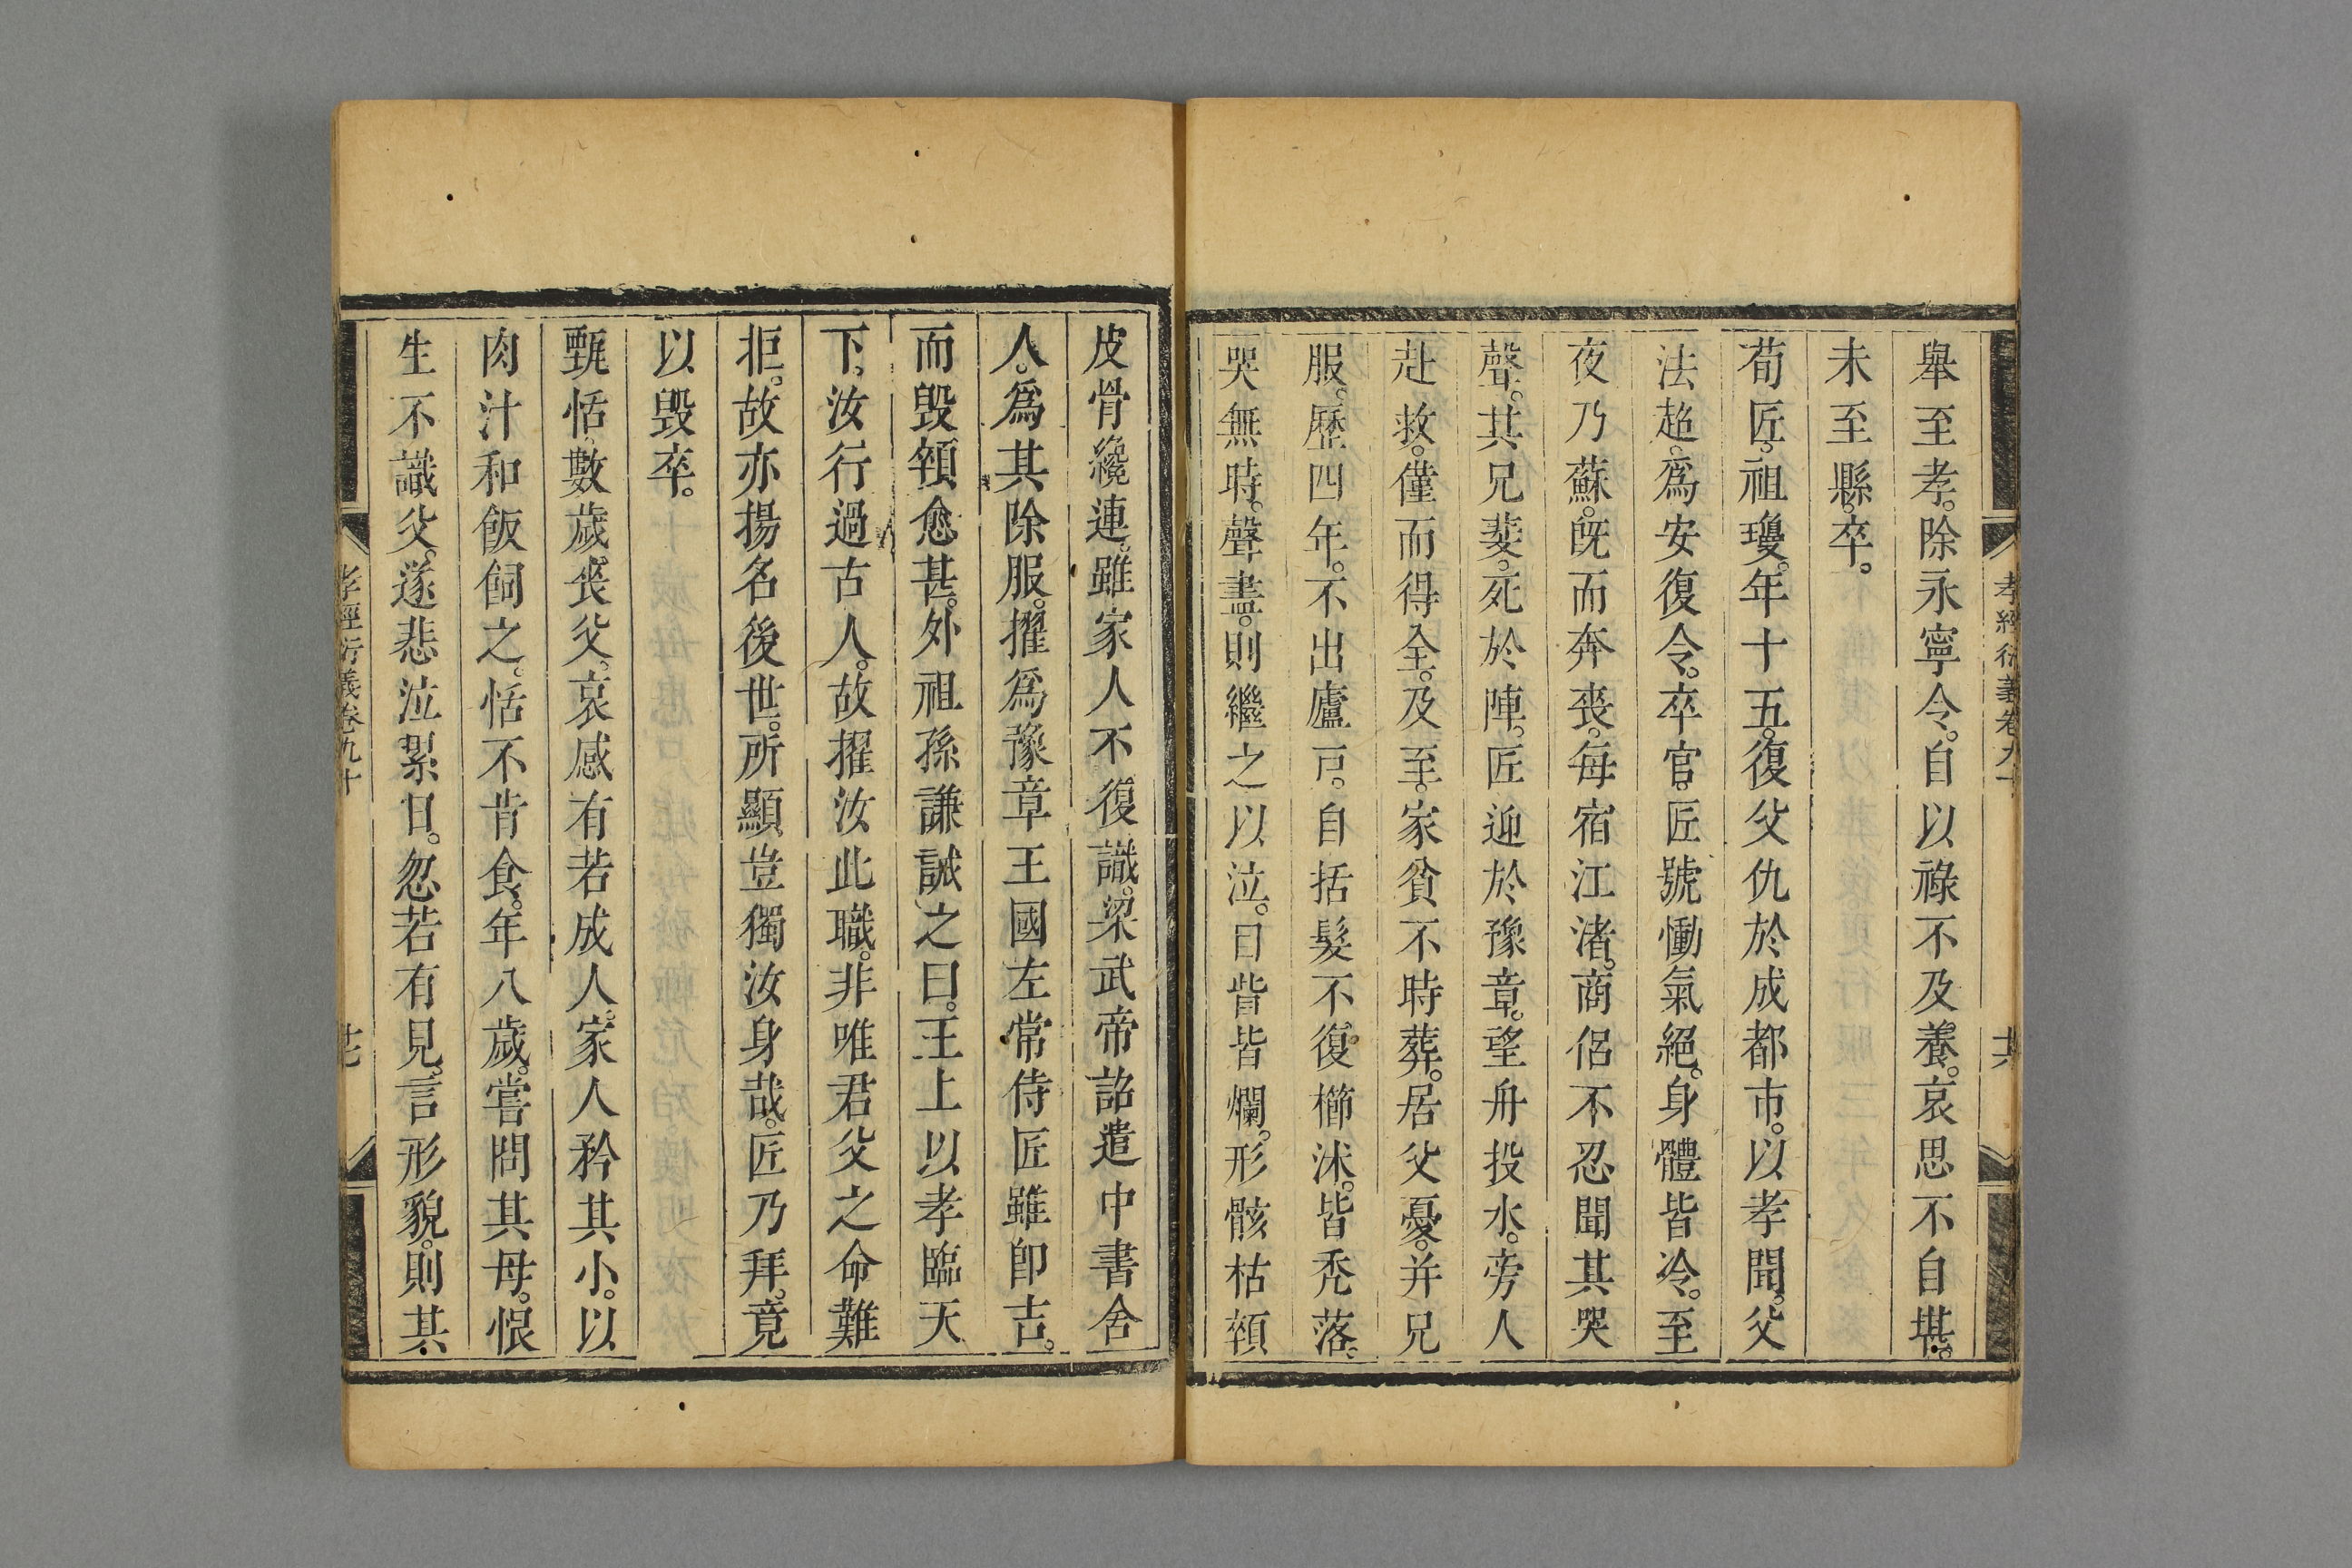 孝經衍義卷九十
舉至孝。除永寧令。自以祿不及養。哀思不自堪。
未至縣。卒。
荀匠。祖瓊。年十五。復父仇於成都市。以孝聞。父
法超。爲安復令。卒官。匠號慟氣絕。身體皆冷。至
夜乃蘇。旣而奔喪。每宿江渚。商侶不忍聞其哭
聲。其兄斐。死於陣。匠迎於豫章。望舟投水。旁人
赴救。僅而得全。及至。家貧不時葬。居父憂。并兄
服。歷四年。不出廬戸。自括髮不復櫛沐。皆禿落。
哭無時。聲盡。則繼之以泣。目眥皆爛。形骸枯顇
皮骨纔連。雖家人不復識。梁武帝詔遣中書舍
人。爲其除服。擢爲豫章王國左常侍匠雖卽吉。
而毀顇愈甚。外祖孫謙誡之曰。王上以孝臨天
下。汝行過古人。故擢汝此職。非唯君父之命難
拒。故亦揚名後世。所顯豈獨汝身哉。匠乃拜。竟
以毀卒。
甄恬。數歲喪父。哀感有若成人。家人矜其小。以
肉汁和飯飼之。恬不肯食。年八歲。嘗問其母。恨
生不識父。遂悲泣累日。忽若有見。言形貌。則其
孝經衍義卷九十
廿七